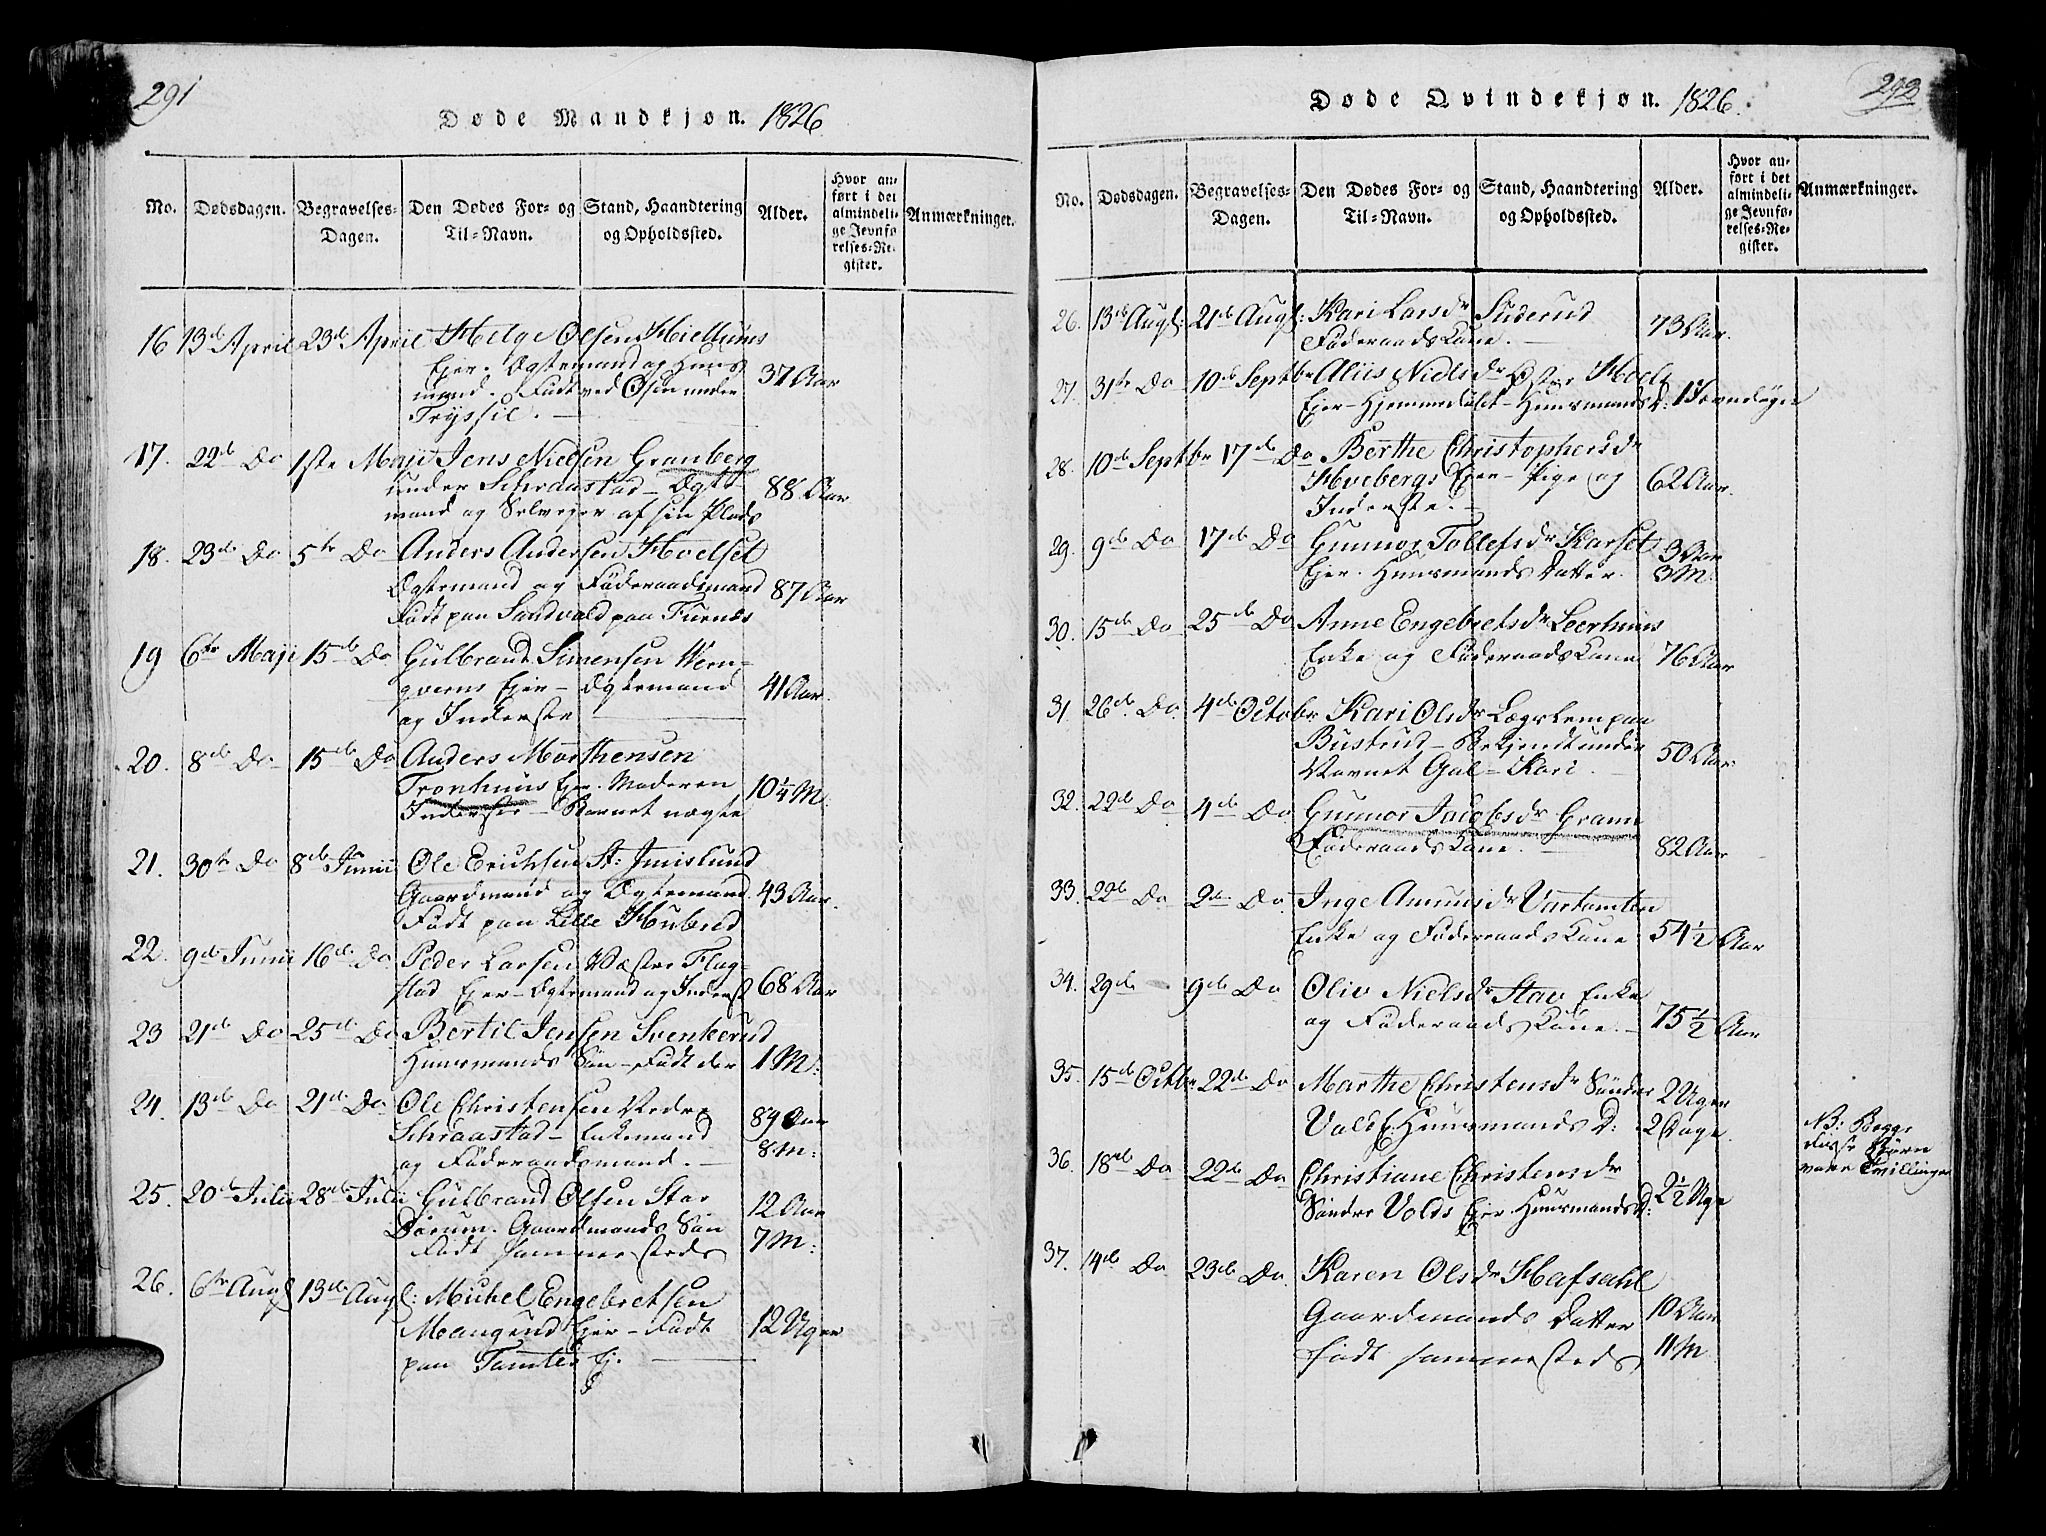 291
Døde Mandkjøn. 1826
No.
Dødsdagen.
Begravelses-
Dagen.
Den Dødes For- og
Til-Navn.
Stand, Haandtering
og Opholdssted.
Alder.
Hvor an-
ført i det
almindeli-
ge Jevnfø-
relses-Re-
gister.
Anmærkninger.
16 13de April 23de April Helge Olsen Hiellums
Ejer. Ægtemand og Huus
mand. Født ved Osen under 37 Aar
Tryssil.
17. 22de Do 1ste Maji Jens Nielsen Granberg
under Schraastad - Ægte 88 Aar
mand og Selvejer af sin Plads
18. 23de Do 5te Do Anders Andersen Hoelset
Ægtemand og Føderaadsmand 87 Aar
Født paa Sandvold paa Furnæs
19 6te Maji 15de Do Gulbrand Simensen Wern-
qverns Ejer - Ægtemand 41 Aar.
og Inderste
20. 8de Do 15de Do Anders Marthensen
Tronhuus Ejer. Moderen 10 1/4 M:
Inderste - Barnet uægte
21. 30te Do 8de Junii Ole Erichsen St: Imislund
Gaardmand og Ægtemand. 43 Aar.
Født paa Lille Huberud
22. 9de Junii 16de Do. Peder Larsen Væster Flag-
stad Ejer - Ægtemand og Inderst 68 Aar
23 21de Do 25de Do Bertil Jensen Svenkerud
Huusmands Søn - Født der 1 M:
24. 13de Do 21de Do. Ole Christensen Nedre
Schraastad - Enkemand 89 Aar
og Føderaadsmand. 8 M:
25. 20de Julii 28de Julii Gulbrand Olsen Stor
Dørum. Gaardmands Søn 12 Aar
Født sammesteds 7 M:
26. 6te Augs 13de Augs: Michel Engebretsen
Maugerud Ejer - Født 12 Uger
paa Tomter Ej.
292
Døde Qvindekjøn. 1826.
No.
Dødsdagen.
Begravelses-
Dagen.
Den Dødes For- og
Til-Navn.
Stand, Haandtering
og Opholdssted.
Alder.
Hvor an-
ført i det
almindeli-
ge Jevnfø-
relses-Re-
gister.
Anmærkninger.
26. 13de Augs: 21de Augs: Kari Larsdr
Føderaadskone. 73 Aar.
27. 31te Do 10de Septbr Aliis Nielsdr Øster Hoels
Ejer - Hjemmedøbt - Huusmands D: 1 Jevndøgn
28. 10de Septbr 17de Do Berthe Christophersdr
Hvebergs Ejer - Pige og 62 Aar.
Inderste.
29. 9de Do 17de Do Gunnor Tollefsdr Karset 3 Aar
Ejer. Huusmands Datter. 3 M:
30. 15de Do 25de Do Anne Engebretsdr Leerhuus
Enke og Føderaadskone 76 Aar
31. 26de Do. 4de Octobr Kari Olsdr Lægslem paa
Bustrud - Bekjendt under 50 Aar
Navnet Gal-Kari.
32. 22de Do 4de Do Gunnor Jacobsdr Graun
Føderaadskone. 82 Aar
33. 22de Do 2de Do. Inge Amunsdr
Enke og Føderaadskone 54 1/2 Aar
34. 29de 9de Do Oliv Nielsdr Stav Enke
og Føderaadskone. 75 1/2 Aar
35. 15de Octbr 22de Do Marthe Christensdr Sønder 2 Uger
Vold E. Huusmands D: 2 Dage.
36. 18de Do 22de Do Christiane Christensdr
Sønder Volds Ejer Huusmands D: 2 1/2 Uge
NB: Begge
disse Børn
vare Tvillinger
37. 14de Do. 23de Do. Karen Olsdr Hafsahl
Gaardmands Datter 10 Aar
født sammesteds 11 M